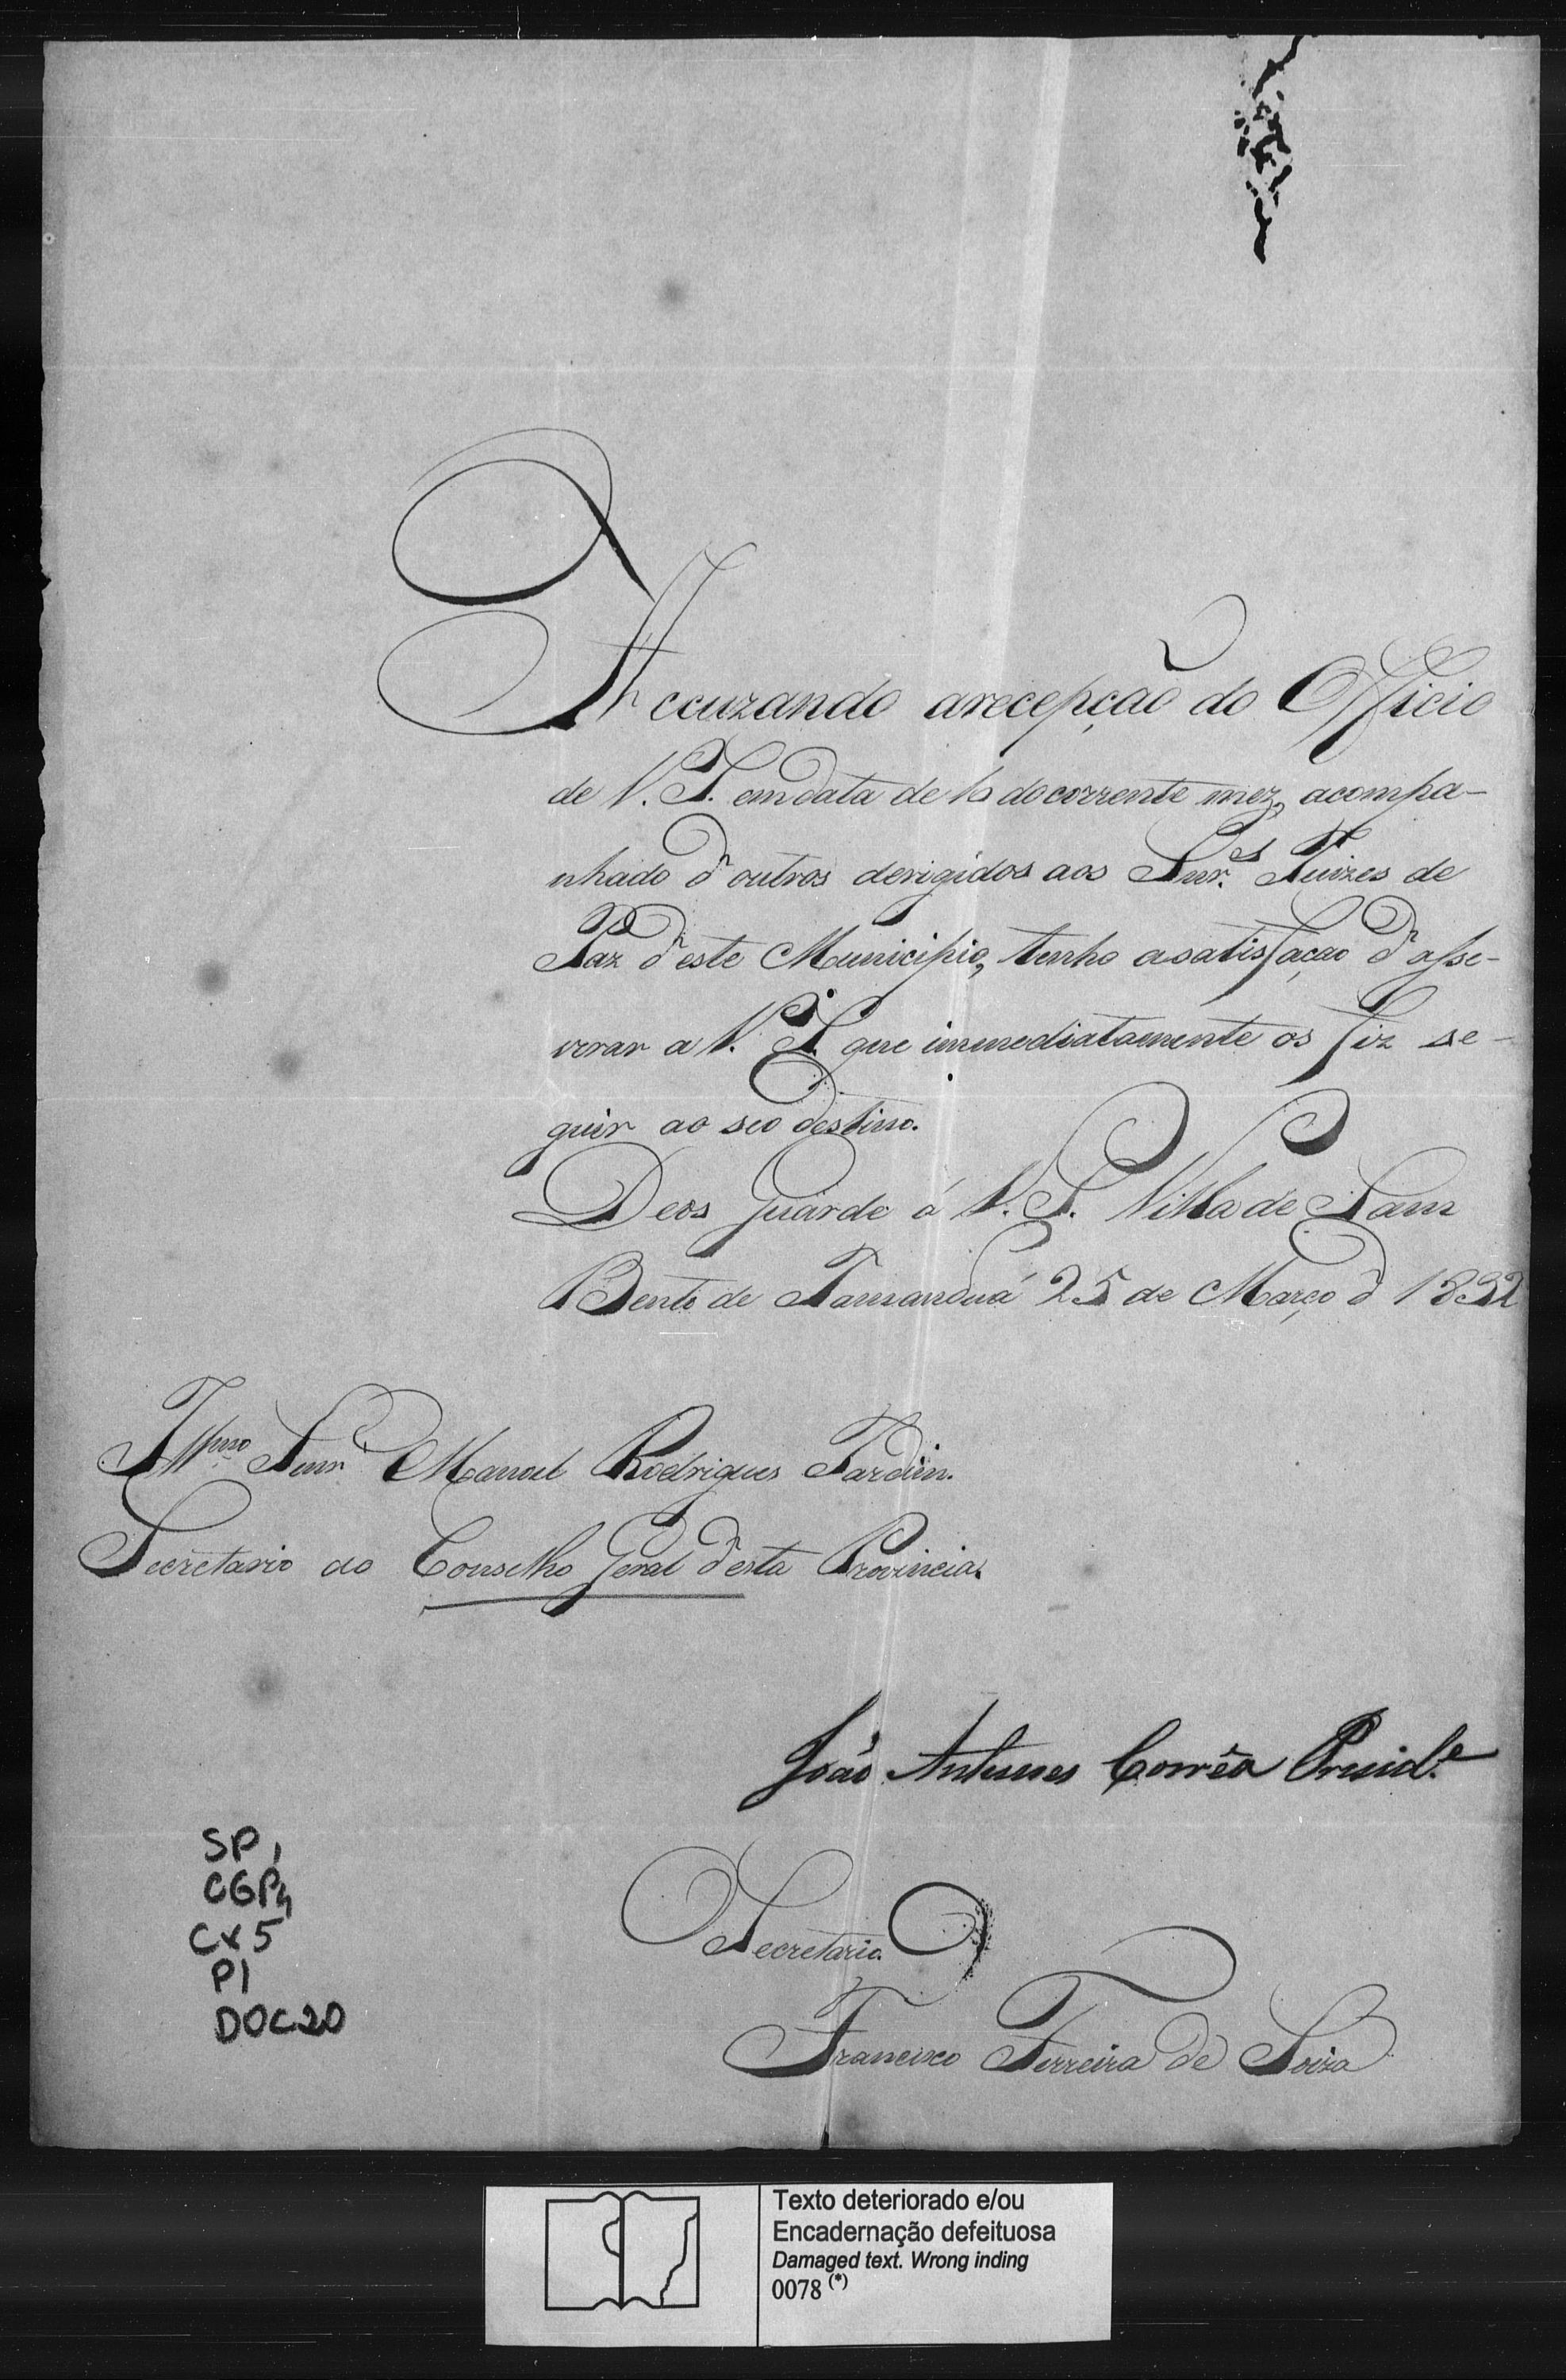 Accuzando arecepção do Officio
de V. S. em data de 10 do corrente mez, acompa-
nhado d'outros derigidos aos Snr.es Juizes de
Paz d'este Municipio, tenho asatisfação d'asse-
verar a V. S. que immediatamente os fiz se-
guir ao seo destino.
Deos Guarde á V. S. Villa de Sam
Bento de Tamanduá 25 de Março d 1832
Illmo Snr. Manoel Rodrigues Jardim.
Secretario do Conselho Geral d'esta Provincia.
João Antunes Corrêa Presid.e
Secretario.
Francisco Ferreira de Soiza
SP1
CGP4
CX5
P1
DOC20
Texto deteriorado e/ou
Encadernação defeituosa
Damaged text. Wrong inding
0078 (*)